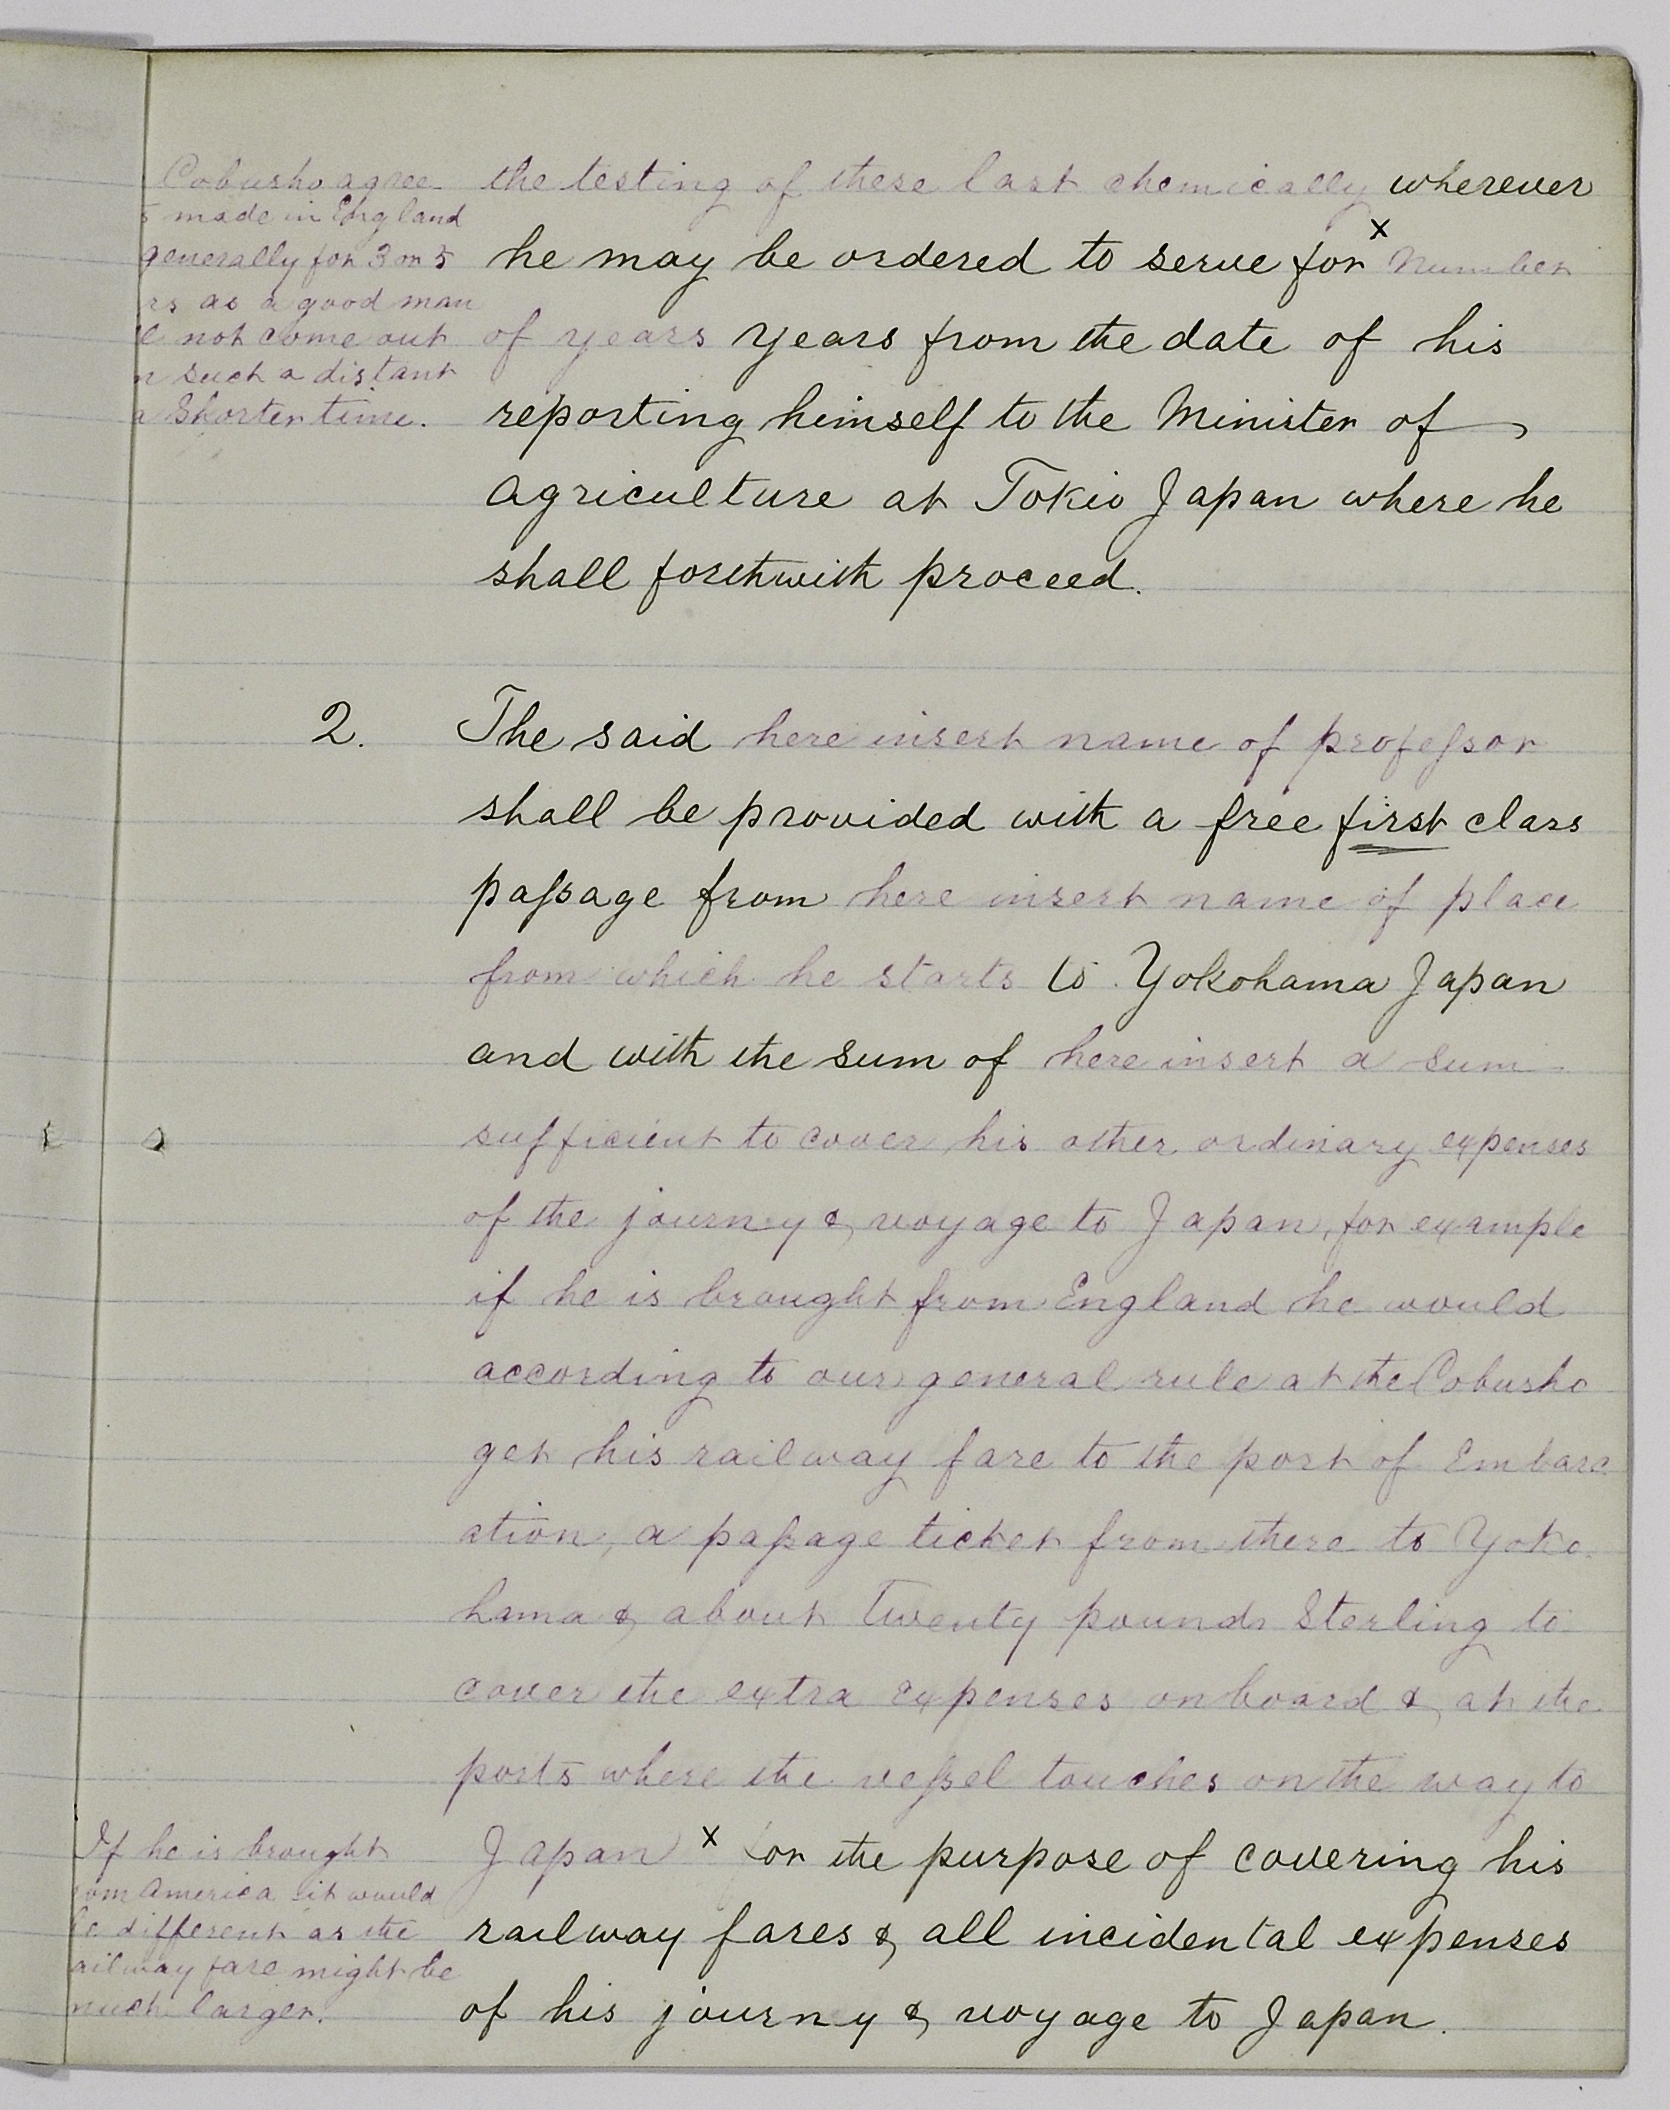 Cobusho agree
made in England
generally for 3 or 5
rs as a good man
not come out
such a distant
a Shorter time.
the testing of these last chemically wherever
he may be ordered to serve for x Number
of years years from the date of his
reporting himself to the Minister of
Agriculture at Tokio Japan where he
shall forthwith proceed.
2. The said here insert name of professor
shall be provided with a free first class
passage from here insert name of place
from which he starts to Yokohama Japan
and with the sum of here insert a sum
sufficient to cover his other ordinary expenses
of the journey & voyage to Japan, for example
if he is brought from England he would
according to our general rule at the Cobusho
get his railway fare to the port of Embarc
ation, a passage ticket from there to Yoko
hama & about Twenty pounds Sterling to
cover the extra expenses on board & at the
ports where the vessel touches on the way to
Japan x for the purpose of covering his
railway fares & all incidental expenses
of his journey & voyage to Japan.
If he is brought
om America it would
be different as the
ailway fare might be
much larger.